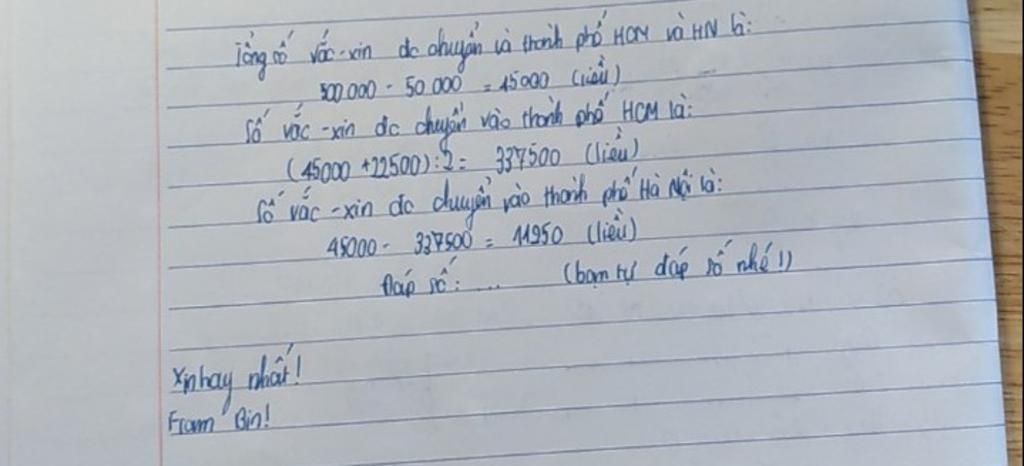 Tổng số vắc-xin đc chuyển và thành phố HCM và HN là:
500.000 - 50.000 = 45000 (liều)
Số vắc-xin đc chuyển vào thành phố HCM là:
(45000 + 22500) : 2 = 337500 (liều)
Số vắc-xin đc chuyển vào thành phố Hà Nội là:
45000 - 337500 = 11250 (liều)
Đáp số: ... (bạn tự đáp số nhé!)
Xinhay nhất!
From Bin!